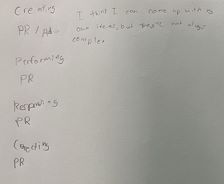 Creating
PR / Ad.
I think I can come up with my
own ideas, but they're not always
complex
Performing
PR
Responding
PR
Connecting
PR